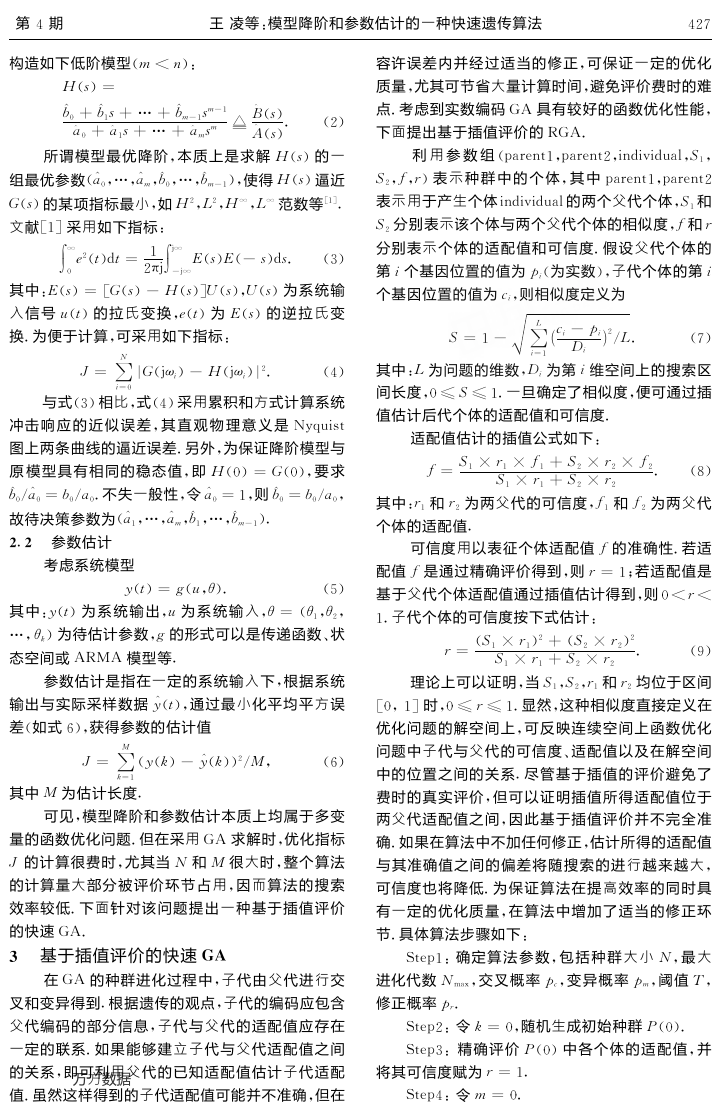 第 4 期
王 凌等:模型降阶和参数估计的一种快速遗传算法
427
构造如下低阶模型(m < n):
H(s) =
(b̂₀ + b̂₁s + ⋯ + b̂ₘ₋₁sᵐ⁻¹)/(â₀ + â₁s + ⋯ + âₘsᵐ) ≜ B̂(s)/Â(s). (2)
所谓模型最优降阶,本质上是求解 H(s) 的一
组最优参数(â₀,⋯,âₘ,b̂₀,⋯,b̂ₘ₋₁),使得 H(s) 逼近
G(s) 的某项指标最小,如 H²,L²,H^∞,L^∞ 范数等[1].
文献[1] 采用如下指标:
∫₀^∞ e²(t)dt = 1/(2πj) ∫_{-j∞}^{j∞} E(s)E(− s)ds. (3)
其中:E(s) = [G(s) − H(s)]U(s),U(s) 为系统输
入信号 u(t) 的拉氏变换,e(t) 为 E(s) 的逆拉氏变
换. 为便于计算,可采用如下指标:
J = ∑_{i=0}^{N} |G(jωᵢ) − H(jωᵢ)|². (4)
与式(3) 相比,式(4) 采用累积和方式计算系统
冲击响应的近似误差,其直观物理意义是 Nyquist
图上两条曲线的逼近误差. 另外,为保证降阶模型与
原模型具有相同的稳态值,即 H(0) = G(0),要求
b̂₀/â₀ = b₀/a₀. 不失一般性,令 â₀ = 1,则 b̂₀ = b₀/a₀,
故待决策参数为(â₁,⋯,âₘ,b̂₁,⋯,b̂ₘ₋₁).
2.2 参数估计
考虑系统模型
y(t) = g(u,θ). (5)
其中:y(t) 为系统输出,u 为系统输入,θ = (θ₁,θ₂,
⋯,θₖ) 为待估计参数,g 的形式可以是传递函数、状
态空间或 ARMA 模型等.
参数估计是指在一定的系统输入下,根据系统
输出与实际采样数据 ŷ(t),通过最小化平均平方误
差(如式 6),获得参数的估计值
J = ∑_{k=1}^{M} (y(k) − ŷ(k))²/M, (6)
其中 M 为估计长度.
可见,模型降阶和参数估计本质上均属于多变
量的函数优化问题. 但在采用 GA 求解时,优化指标
J 的计算很费时,尤其当 N 和 M 很大时,整个算法
的计算量大部分被评价环节占用,因而算法的搜索
效率较低. 下面针对该问题提出一种基于插值评价
的快速 GA.
3 基于插值评价的快速 GA
在 GA 的种群进化过程中,子代由父代进行交
叉和变异得到. 根据遗传的观点,子代的编码应包含
父代编码的部分信息,子代与父代的适配值应存在
一定的联系. 如果能够建立子代与父代适配值之间
的关系,即可利用父代的已知适配值估计子代适配
值. 虽然这样得到的子代适配值可能并不准确,但在
万方数据
容许误差内并经过适当的修正,可保证一定的优化
质量,尤其可节省大量计算时间,避免评价费时的难
点. 考虑到实数编码 GA 具有较好的函数优化性能,
下面提出基于插值评价的 RGA.
利用参数组(parent1,parent2,individual,S₁,
S₂,f,r) 表示种群中的个体,其中 parent1,parent2
表示用于产生个体 individual 的两个父代个体,S₁和
S₂ 分别表示该个体与两个父代个体的相似度,f 和 r
分别表示个体的适配值和可信度. 假设父代个体的
第 i 个基因位置的值为 pᵢ(为实数),子代个体的第 i
个基因位置的值为 cᵢ,则相似度定义为
S = 1 − √(∑_{i=1}^{L} ((cᵢ − pᵢ)/Dᵢ)²/L). (7)
其中:L 为问题的维数,Dᵢ 为第 i 维空间上的搜索区
间长度,0 ⩽ S ⩽ 1. 一旦确定了相似度,便可通过插
值估计后代个体的适配值和可信度.
适配值估计的插值公式如下:
f = (S₁ × r₁ × f₁ + S₂ × r₂ × f₂)/(S₁ × r₁ + S₂ × r₂). (8)
其中:r₁ 和 r₂ 为两父代的可信度,f₁ 和 f₂ 为两父代
个体的适配值.
可信度用以表征个体适配值 f 的准确性. 若适
配值 f 是通过精确评价得到,则 r = 1;若适配值是
基于父代个体适配值通过插值估计得到,则 0 < r <
1. 子代个体的可信度按下式估计:
r = ((S₁ × r₁)² + (S₂ × r₂)²)/(S₁ × r₁ + S₂ × r₂). (9)
理论上可以证明,当 S₁,S₂,r₁ 和 r₂ 均位于区间
[0, 1] 时,0 ⩽ r ⩽ 1. 显然,这种相似度直接定义在
优化问题的解空间上,可反映连续空间上函数优化
问题中子代与父代的可信度、适配值以及在解空间
中的位置之间的关系. 尽管基于插值的评价避免了
费时的真实评价,但可以证明插值所得适配值位于
两父代适配值之间,因此基于插值评价并不完全准
确. 如果在算法中不加任何修正,估计所得的适配值
与其准确值之间的偏差将随搜索的进行越来越大,
可信度也将降低. 为保证算法在提高效率的同时具
有一定的优化质量,在算法中增加了适当的修正环
节. 具体算法步骤如下:
Step1: 确定算法参数,包括种群大小 N,最大
进化代数 Nₘₐₓ,交叉概率 p_c,变异概率 pₘ,阈值 T,
修正概率 pᵣ.
Step2: 令 k = 0,随机生成初始种群 P(0).
Step3: 精确评价 P(0) 中各个体的适配值,并
将其可信度赋为 r = 1.
Step4: 令 m = 0.